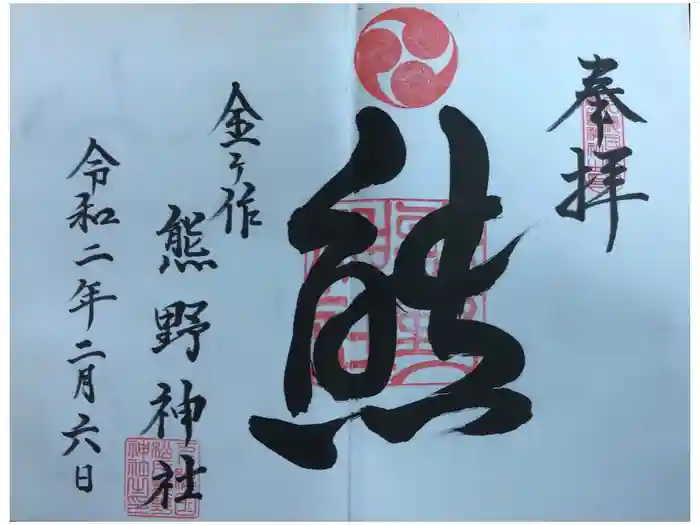 奉拝
熊
金子作
熊野神社
令和二年二月六日